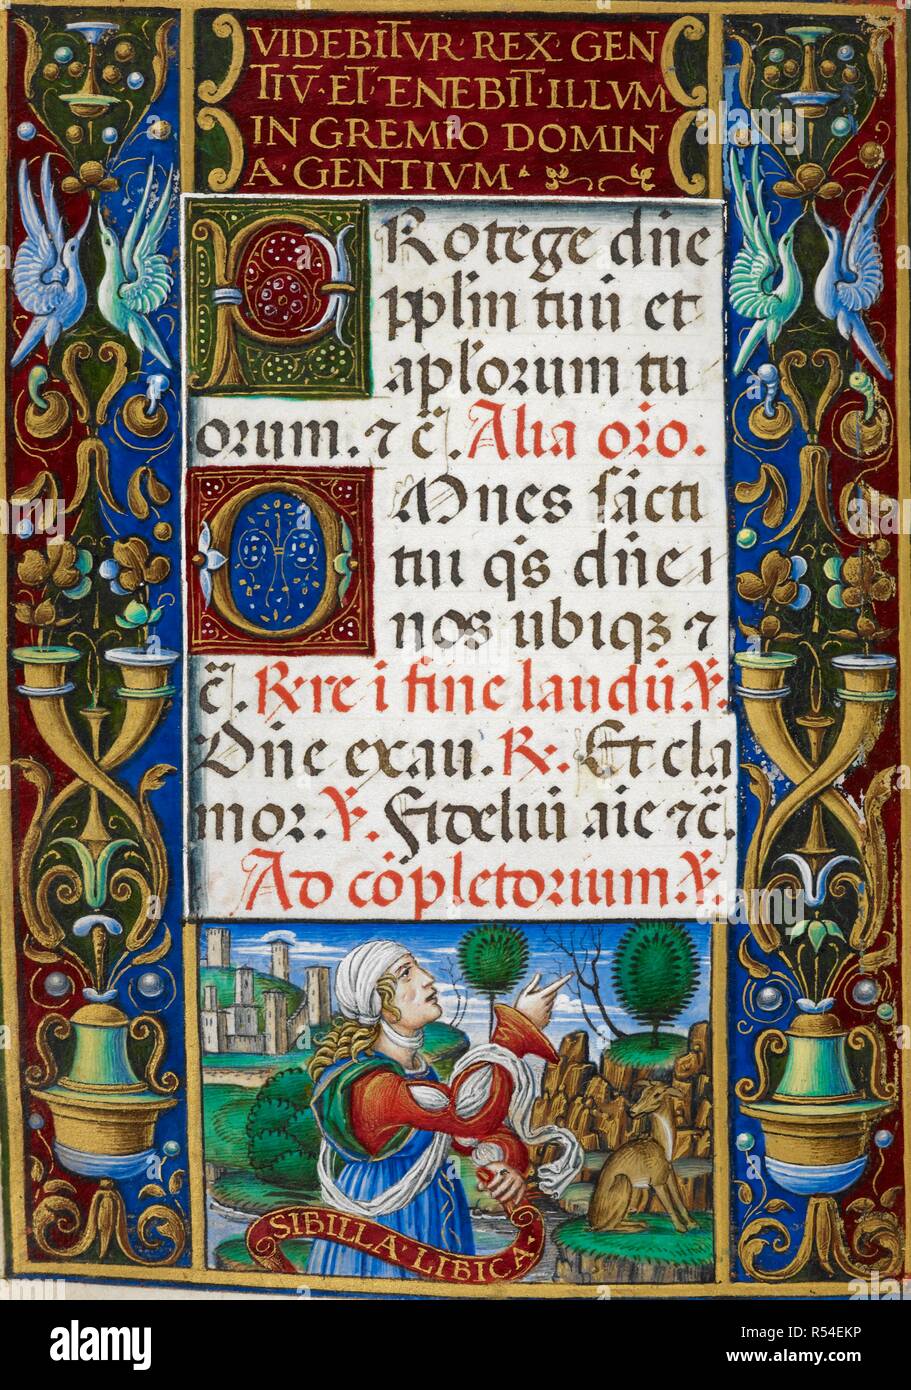 VIDEBITVR·REX·GEN
TIV̄·ET·TENEBIT·ILLVM
IN GREMIO DOMIN
A·GENTIVM·
Protege dn̄e
pplm tuū et
apl'orum tu
orum. ⁊ c̄. Alia orō.
OMnes sācti
tui q̄s dn̄e i
nos ubiqꝫ ⁊
c̄. R̷.re i fine laudū V̷.
Dn̄e exau. R̷. Et cla
mor. V̷. Fideliū aīe ⁊c̄.
Ad cōpletorium V̷.
SIBILLA·LIBICA·
alamy
Image ID: R54EKP
www.alamy.com